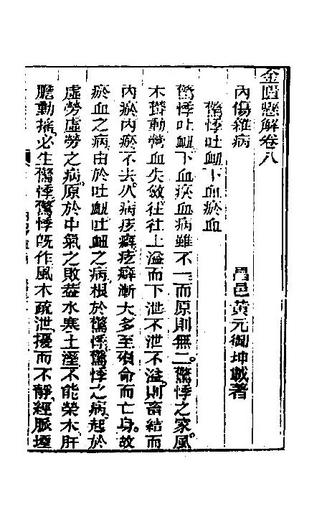 金匱懸解卷八
昌邑黃元御坤載著
內傷雜病
驚悸吐衄下血瘀血
驚悸吐衄下血瘀血病雖不一而原則無二驚悸之家風
木鬱動營血失斂往往上溢而下泄不泄不溢則蓄結而
內瘀內瘀不去久病疾癖㾗癖漸大多至殞命而亡身故
瘀血之病由於吐衄吐衄之病根於驚悸驚悸之病起於
虛勞虛勞之病原於中氣之敗蓋水寒土溼不能榮木肝
膽動搖必生驚悸驚悸旣作風木疏泄擾而不靜經脈堙